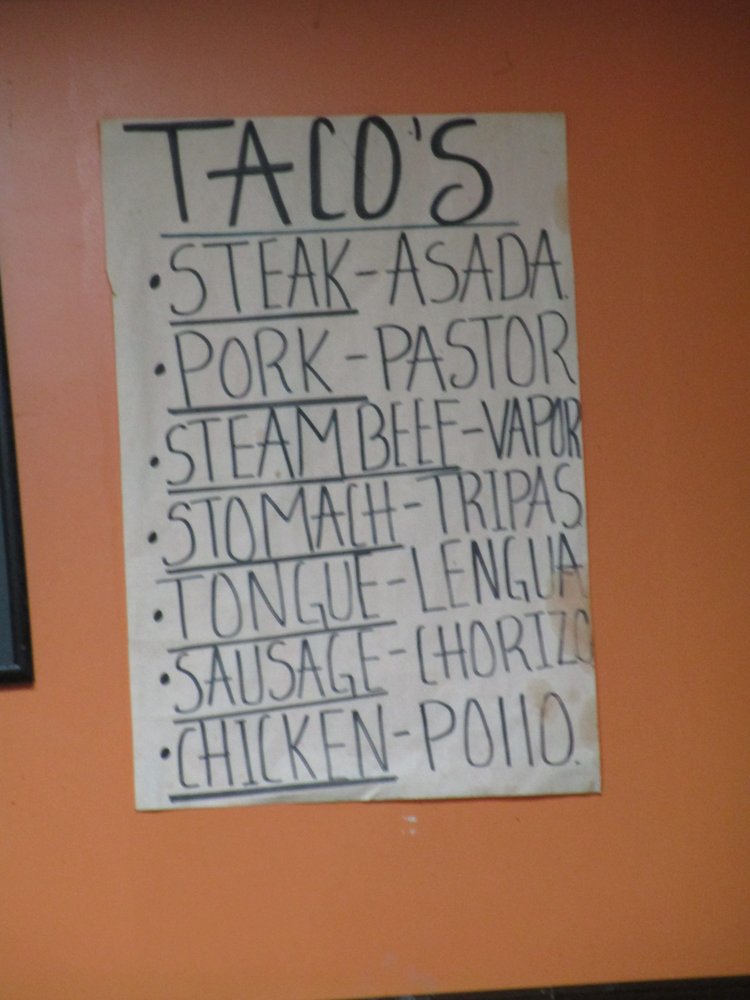 TACO'S
• STEAK-ASADA.
• PORK-PASTOR
• STEAM BEEF-VAPOR
• STOMACH-TRIPAS
• TONGUE-LENGUA
• SAUSAGE-CHORIZO
• CHICKEN-POllO.